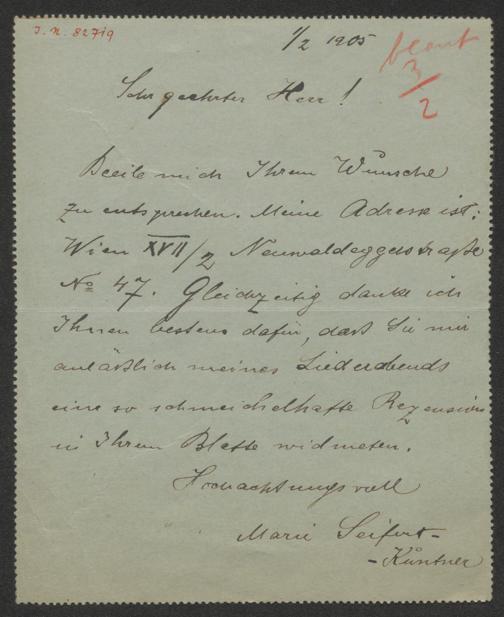 I. N. 82719
1/2 1905
beant
3/2
Sehr geehrter Herr!
Beeile mich Ihrem Wunsche
zu entsprechen. Meine Adresse ist:
Wien XVII/2 Neuwaldeggerstraße
No 47. Gleichzeitig danke ich
Ihnen bestens dafür, daß Sie mir
anläßlich meines Liederabends
eine so schmeichelhafte Rezension
in Ihrem Blatte widmeten.
Hochachtungsvoll
Marie Seifert-
-Küntner